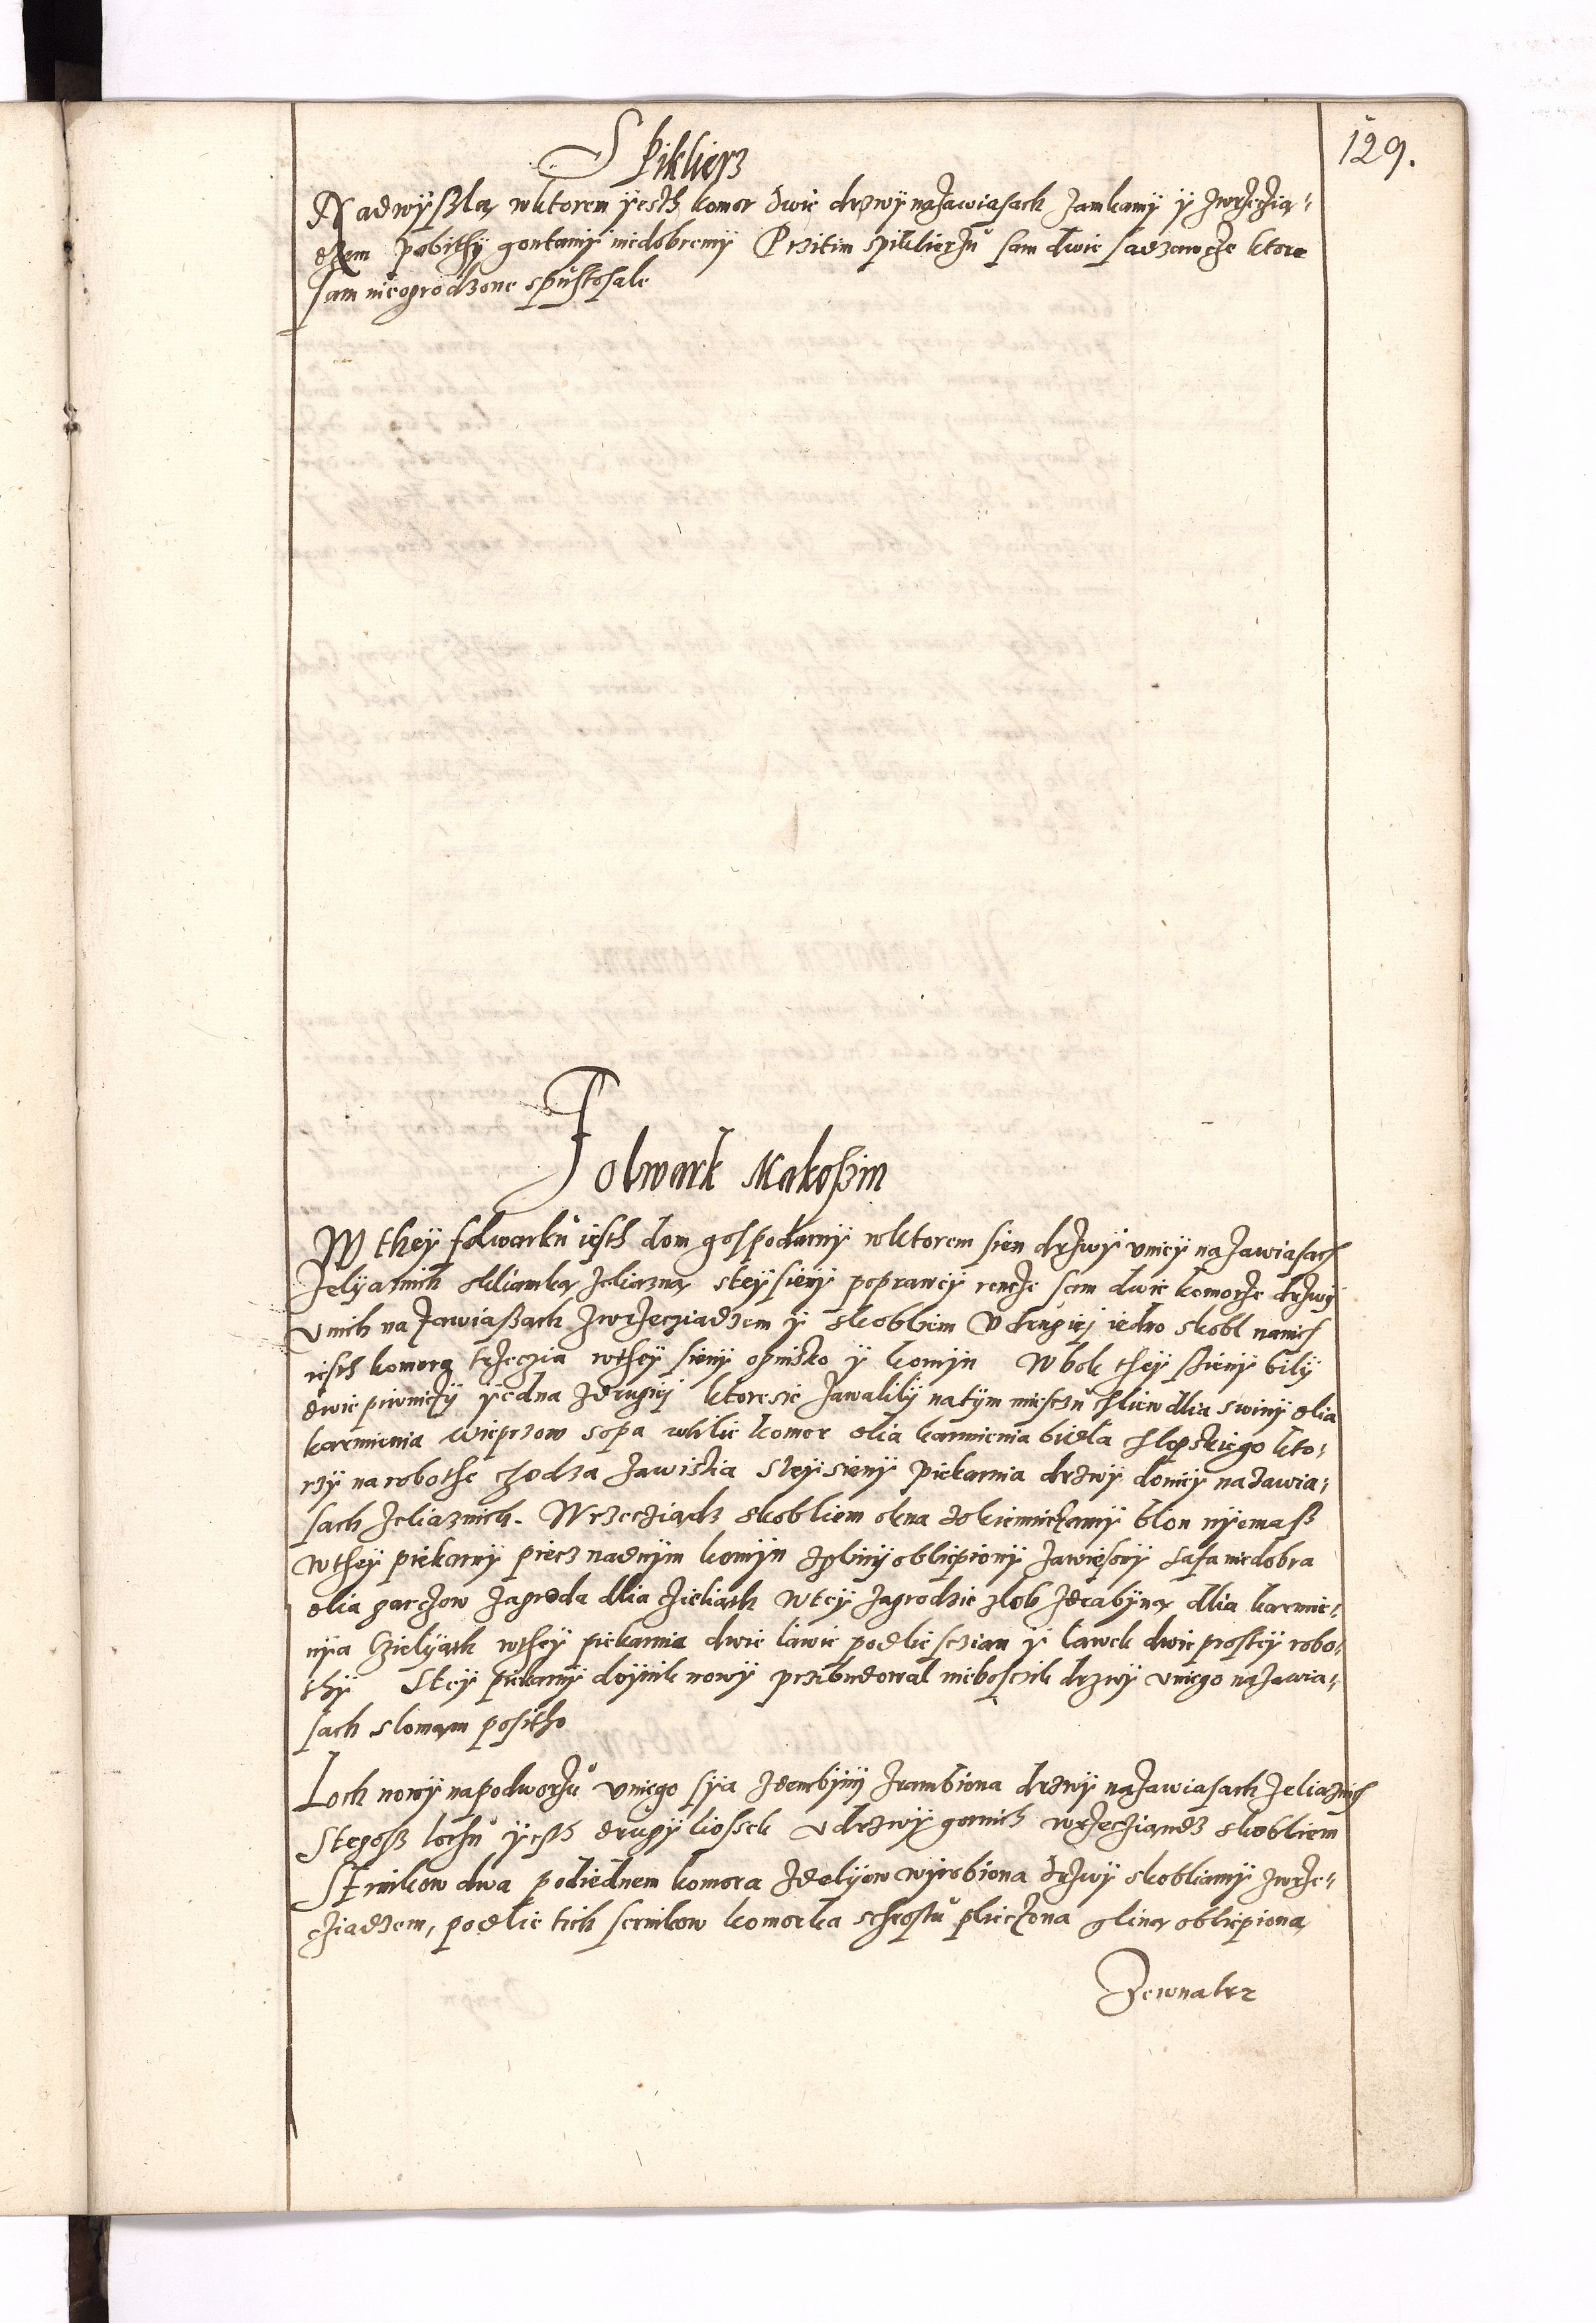 129.
Spiklierz
Nad wyszlą wktorem yesth komor dwie drzwy nazawiasach zamkamy y zwrzeczią-
dzem pobithy gontamy niedobremy Przitim spiklierzu sam dwie sadzawcze ktore
sam nieogrodzone spustosale
Folwark Makoszin
W they folwarku iesth dom gospodarny wktorem sien drzwy uniey nazawiasach
Zelyaznich kliamka zeliazna steysieny poprawey rencze sam dwie komorze drzwy
unich nazawiaszach zwrzecziadzem y skobliem Udrugiej iedno skobl namich
iesth komora trzeczia wthey sieny ognisko y komyn Wbok they sieny bily
dwie piwniczy yedna zdrugiej ktoresie zawalily natym miesczu chliew dlia swiny dlia
karmienia wieprzow sopa wkilie komor dlia karmienia bidla chlopskiego kto-
rzy narobothe chodza zawiskia Steysieny piekarnia drzwy doniey nazawia-
sach zeliaznich. Wrzecziadz skobliem okna zokiennicżamy blon nyemasz
wthey piekarny piecz nadnym komyn zgliny obliepiony zawiesony safa niedobra
dlia garczow zagroda dlia cieliath wtey zagrodzie zlob zdrabyną dlia karmie-
nya Czielyath wthey piekarnia dwie lawie podlie sczian y lawek dwie prostey robo-
thy Stey piekarny doynik nowy przibudowal nieboszik drzwy uniego nazawia-
sach slomam positho
Loch nowy napodworzu uniego sya zdembyny zrambiona drzwy nazawiasach zeliaznich
Stegosz lochu yesth drugy liossek udrzwy gornich wrzecziandz skobliem
Sernikow dwa podiednem komora zdelyow wyrobiona drzwy skobliamy zwrze-
cziadzem, podlie tich sernikow komorka schrostu pliecżona gliną obliepiona
Zewnatrz